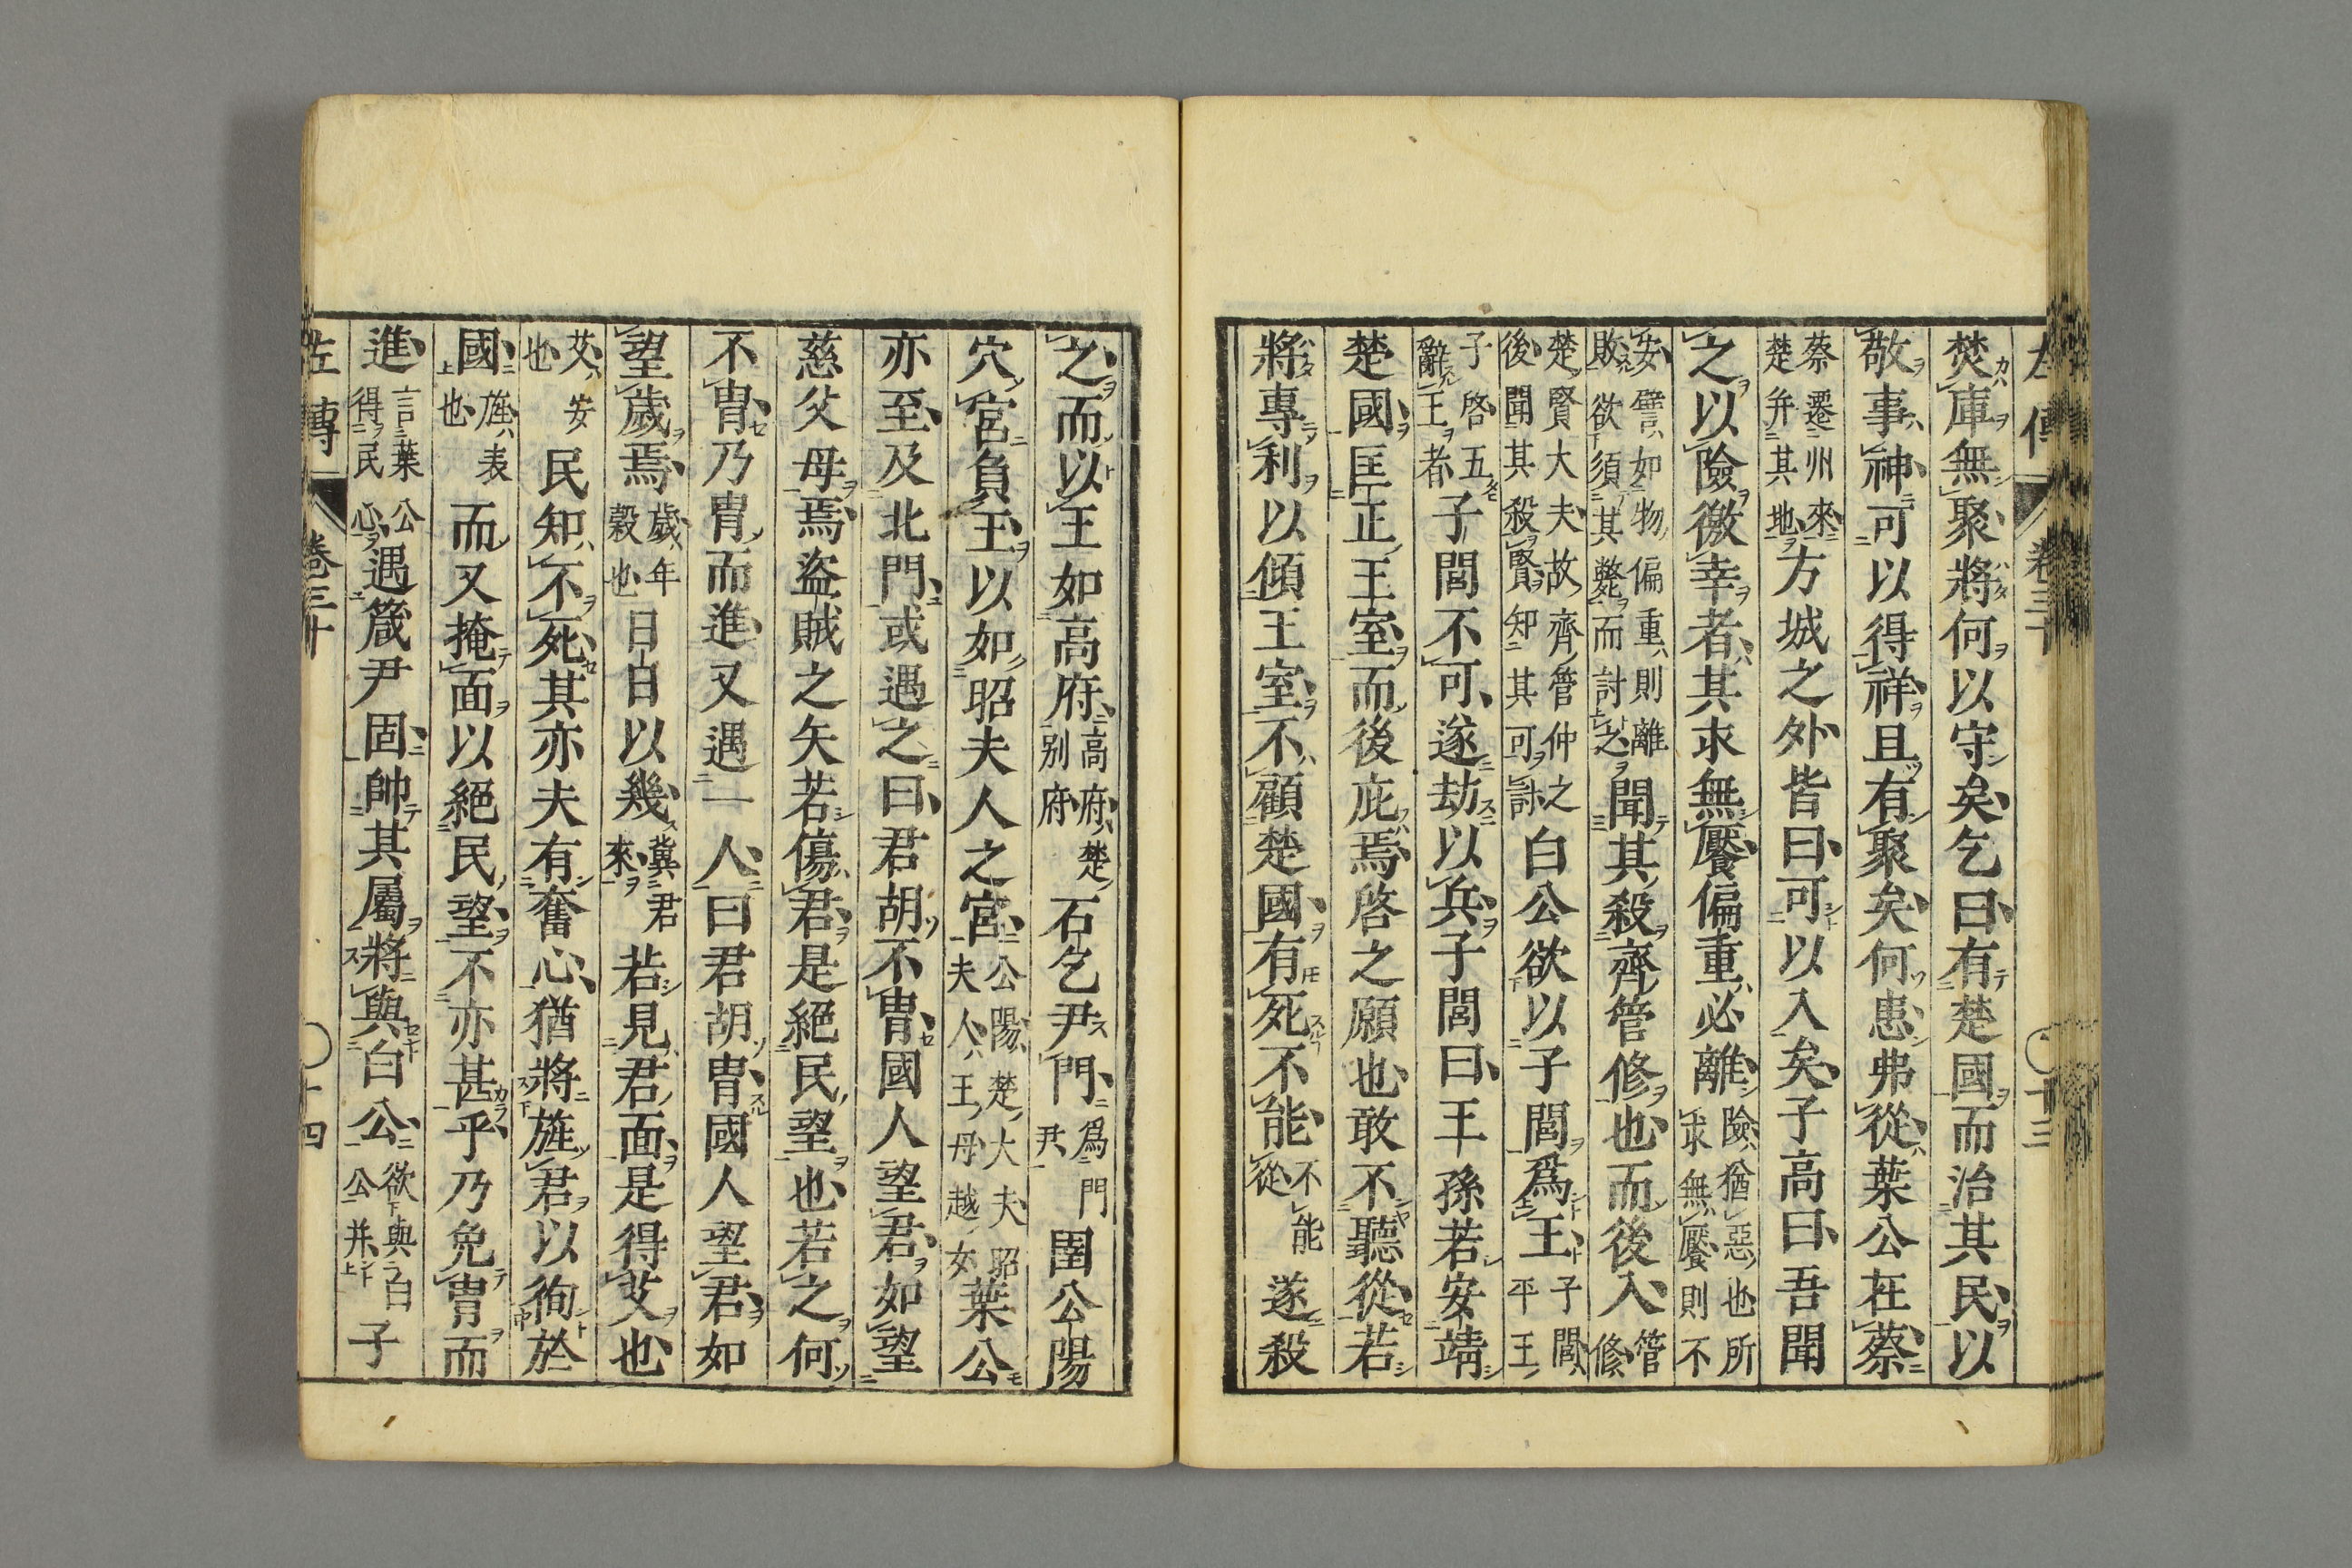 左傳 卷三十 十三
焚庫無聚將何以守矣乞曰有楚國而治其民以
敬事神可以得祥且有聚矣何患弗從葉公在蔡
蔡遷州來楚并其地方城之外皆曰可以入矣子高曰吾聞
之以險徼幸者其求無饜偏重必離險猶惡也所求無饜則不
安譬如物偏重則離敗欲須其斃而討之聞其殺齊管修也而後入管修
楚賢大夫故齊管仲之後聞其殺賢知其可討白公欲以子閭爲王子閭平王
子啓五辭王者子閭不可遂劫以兵子閭曰王孫若安靖
楚國匡正王室而後庇焉啓之願也敢不聽從若
將專利以傾王室不顧楚國有死不能不能從遂殺
之而以王如高府高府楚別府石乞尹門爲門尹圉公陽
穴宮負王以如昭夫人之宮公陽楚大夫昭夫人王母越女葉公
亦至及北門或遇之曰君胡不冑國人望君如望
慈父母焉盜賊之矢若傷君是絕民望也若之何
不冑乃冑而進又遇一人曰君胡冑國人望君如
望歲焉歲年穀也日日以幾冀君來若見君面是得艾也
艾安也民知不死其亦夫有奮心猶將旌君以徇於
國旌表也而又掩面以絕民望不亦甚乎乃免冑而
進言葉公得民心遇箴尹固帥其屬將與白公欲與白公并子
左傳 卷三十 十四